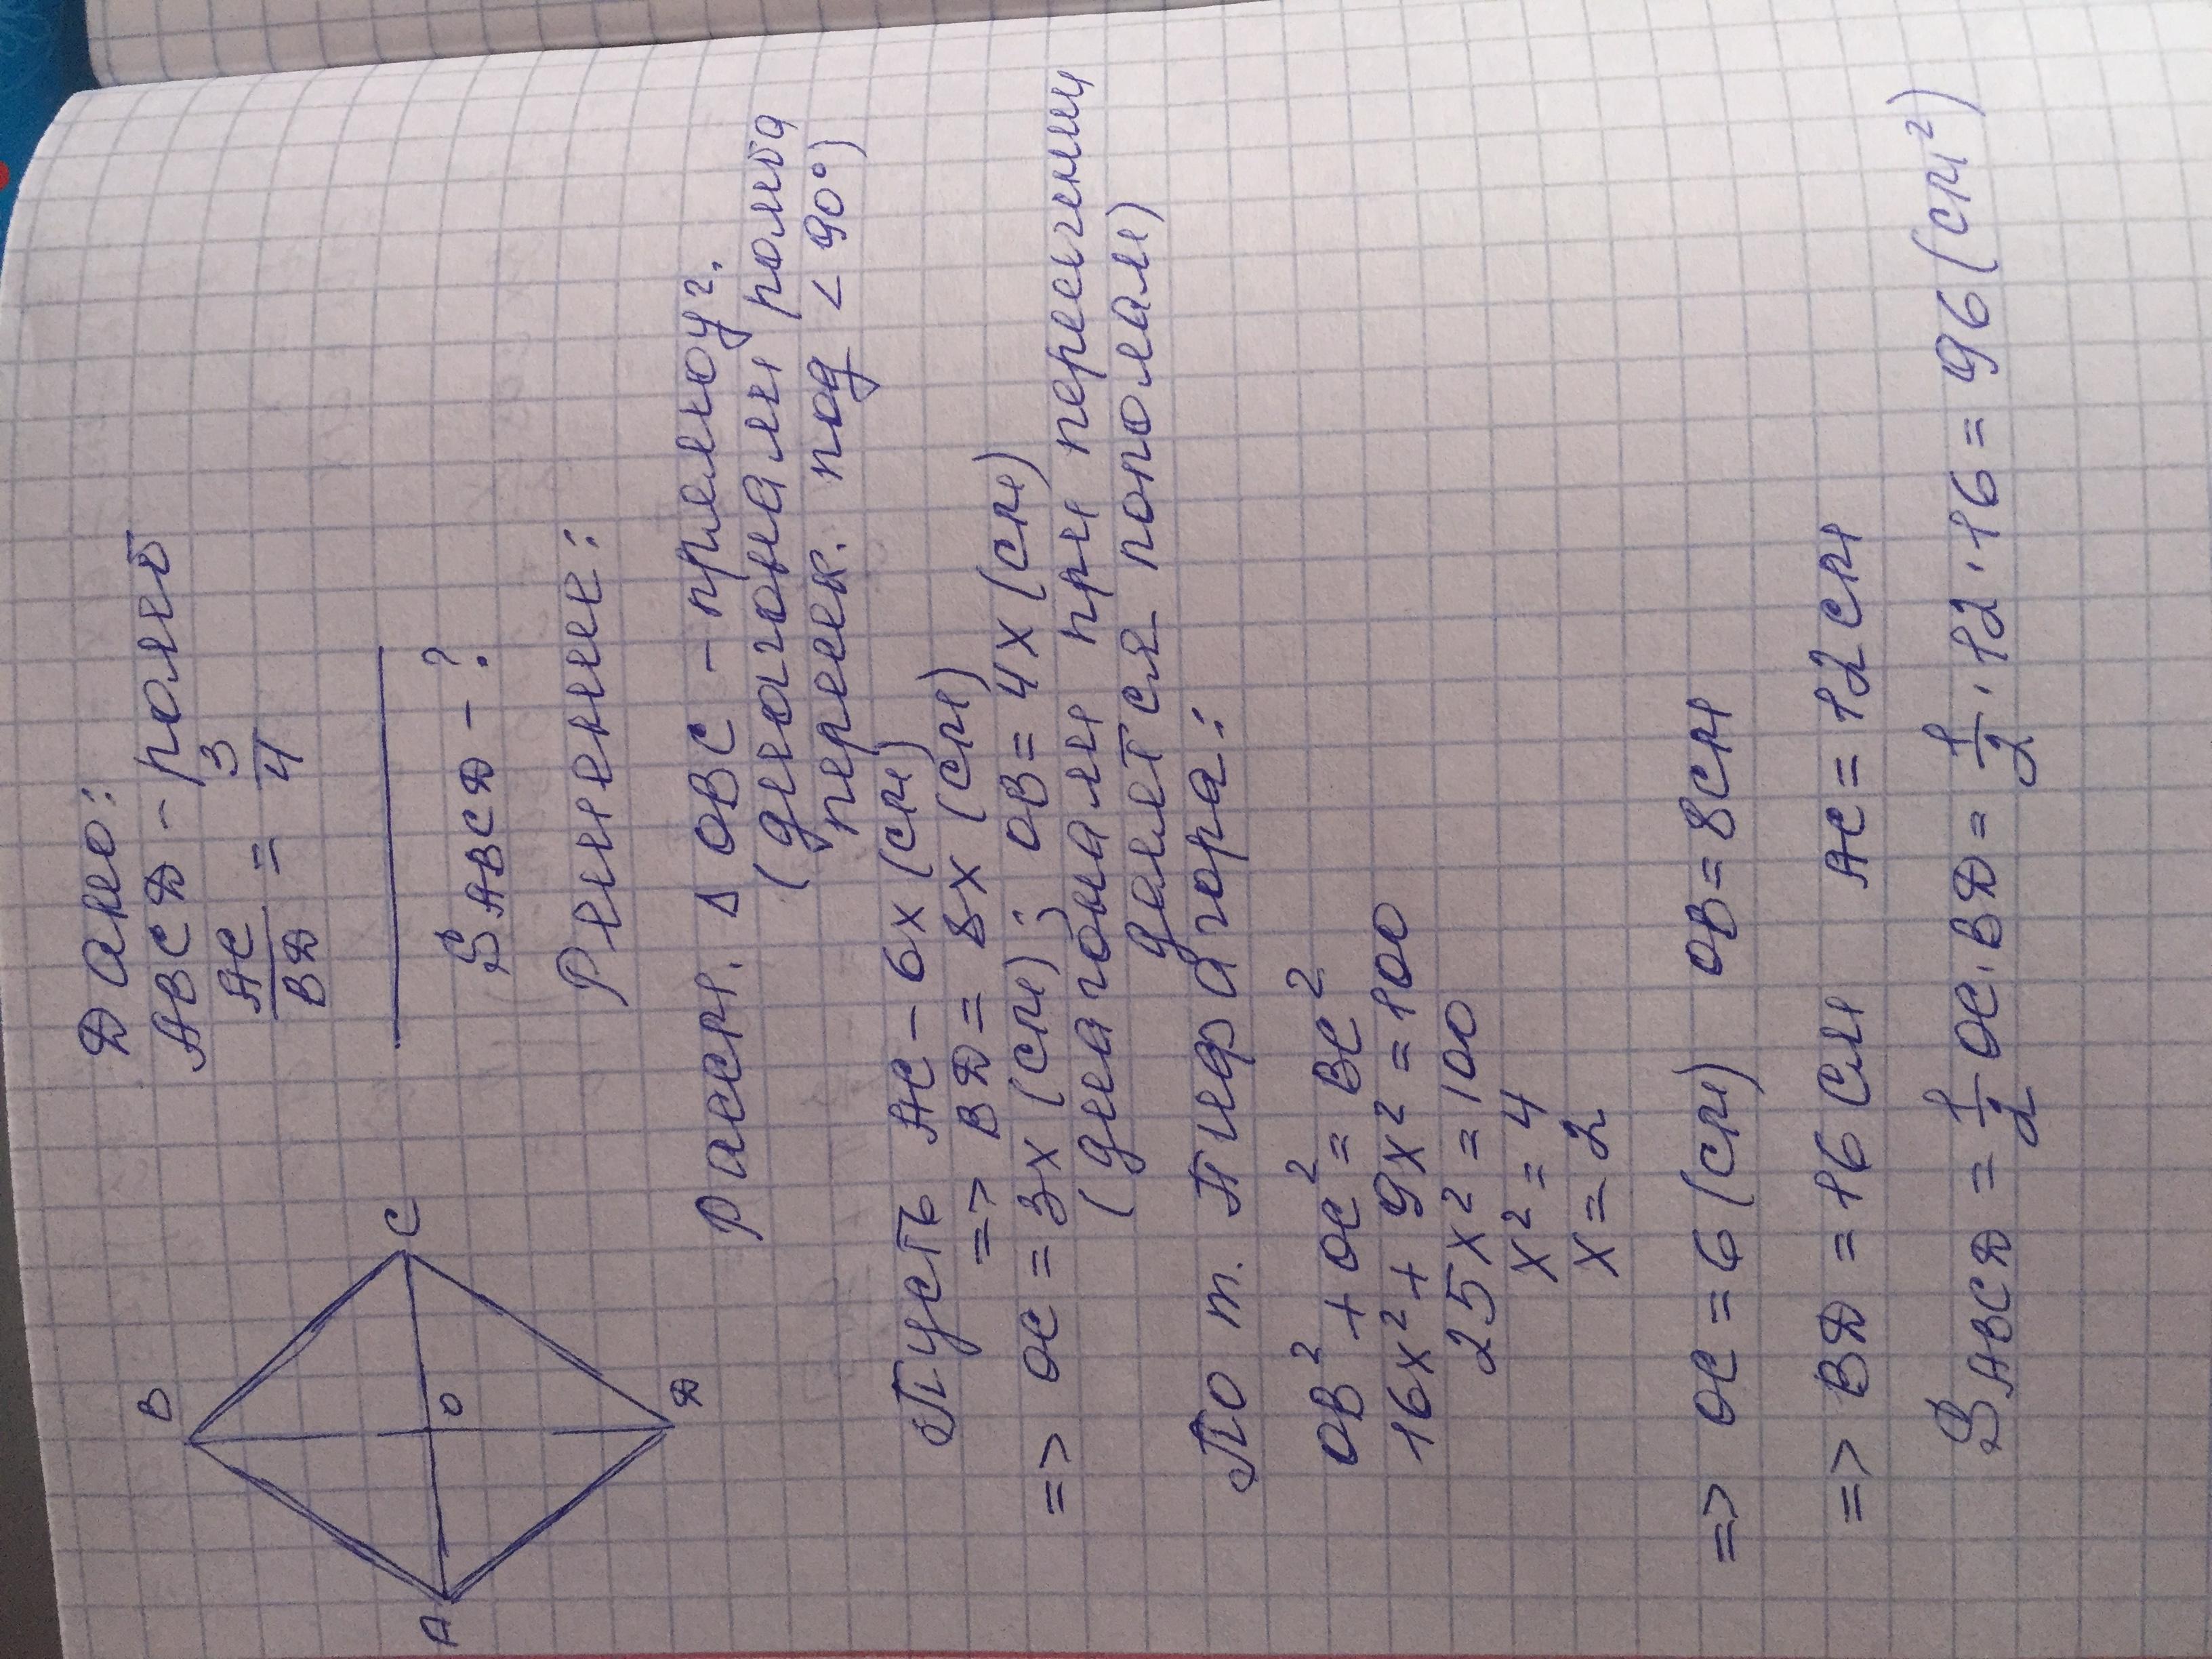 B
A
C
O
D
Дано:
ABCD - ромб
AC/BD = 3/4
S ABCD - ?
Решение:
Рассм. Δ OBC - прямоуг.
(диагонали ромба
перессек. под < 90°)
Пусть AC - 6x (см)
=> BD = 8x (см)
=> OC = 3x (см); OB = 4x (см)
(диагонали при
делится пополам)
По т. Пифагора:
OB² + OC² = BC²
16x² + 9x² = 100
25x² = 100
x² = 4
x = 2
=> OC = 6 (см) OB = 8 см
=> BD = 16 см AC = 12 см
S ABCD = 1/2 OC · BD = 1/2 · 12 · 16 = 96 (см²)